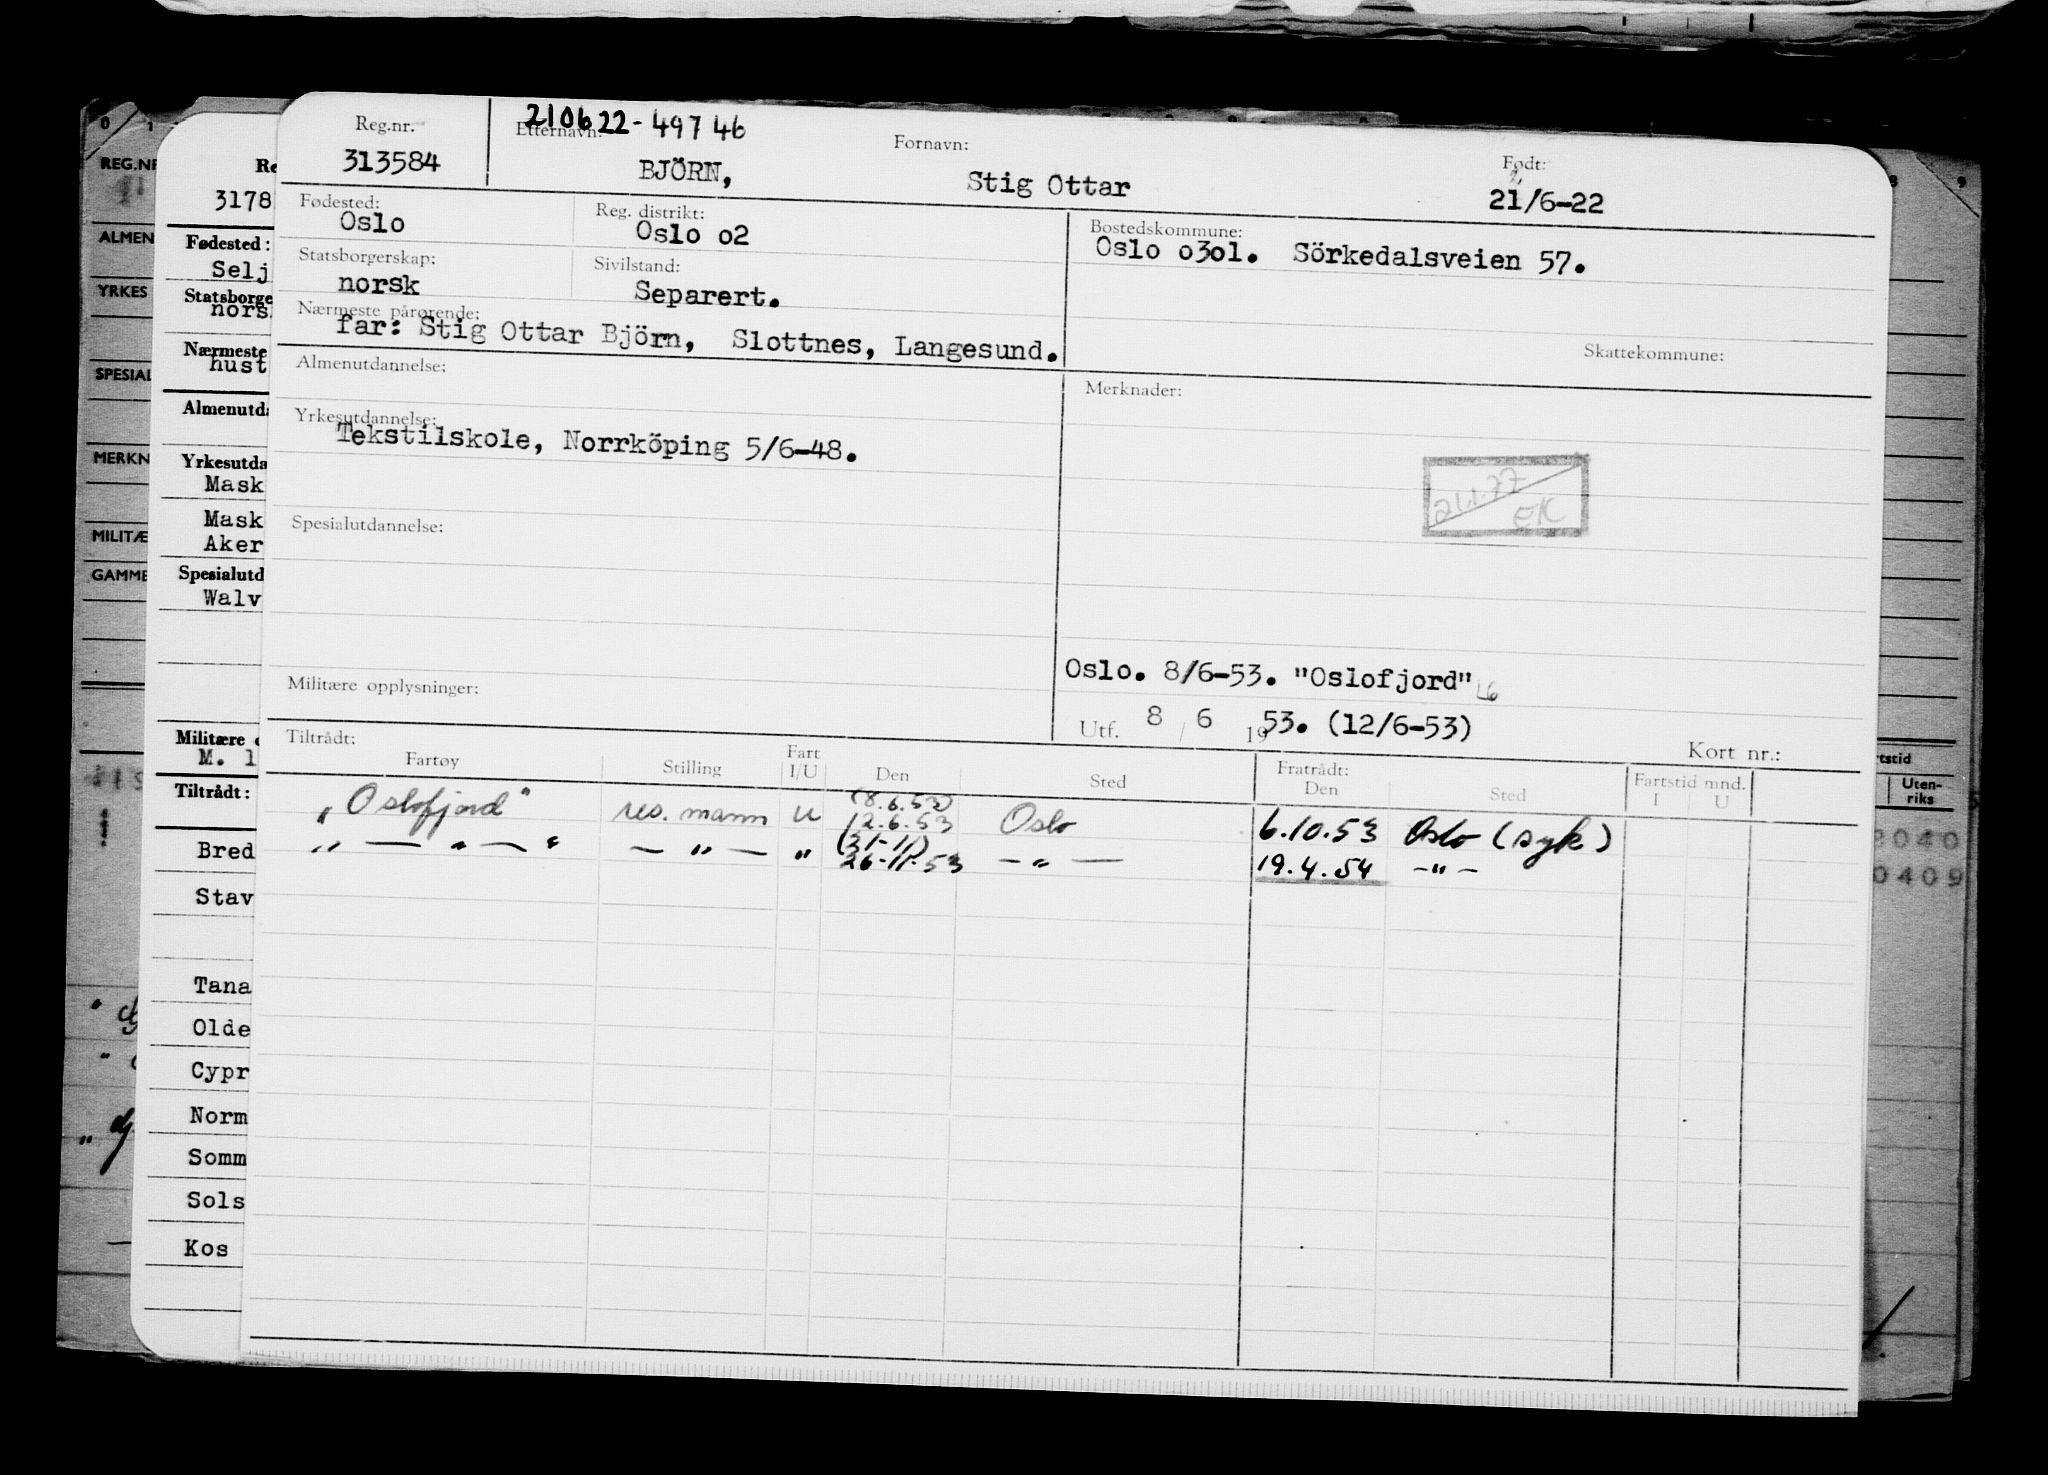 210622-49746
Reg.nr. Etternavn: Fornavn: Født:
313584 BJÖRN, Stig Ottar 21/6-22
Fødested: Reg. distrikt: Bostedskommune:
Oslo Oslo o2 Oslo o3o1. Sörkedalsveien 57.
Statsborgerskap: Sivilstand:
norsk Separert.
Nærmeste pårørende:
far: Stig Ottar Björn, Slottnes, Langesund.
Skattekommune:
Almenutdannelse: Merknader:
Yrkesutdannelse:
Tekstilskole, Norrköping 5/6-48.
21.1.77
EK
Spesialutdannelse:
Oslo. 8/6-53. "Oslofjord"
Militære opplysninger:
Utf. 8 / 6 1953. (12/6-53)
Kort nr.:
Tiltrådt: Fratrådt: Fartstid mnd.
Fartøy Stilling Fart I/U Den Sted Den Sted I U
(8.6.53)
„Oslofjord" res. mann u 12.6.53 Oslo 6.10.53 Oslo (syk)
(21-11)
„ — „ — " — " — „ 26-11-53 — " — 19.4.54 — " —
REG.NR
ALMEN
YRKES
SPESIAL
MERKN
MILITÆ
GAMME
3178
Fødested:
Selj
Statsborge
nors
Nærmeste
hust
Almenutda
Yrkesutda
Mask
Mask
Aker
Spesialutd
Walv
Militære o
M. l
Tiltrådt:
Bred
Stav
Tana
Olde
Cypr
Norm
Somm
Sols
Kos
rtstid
Uten-
riks
0409